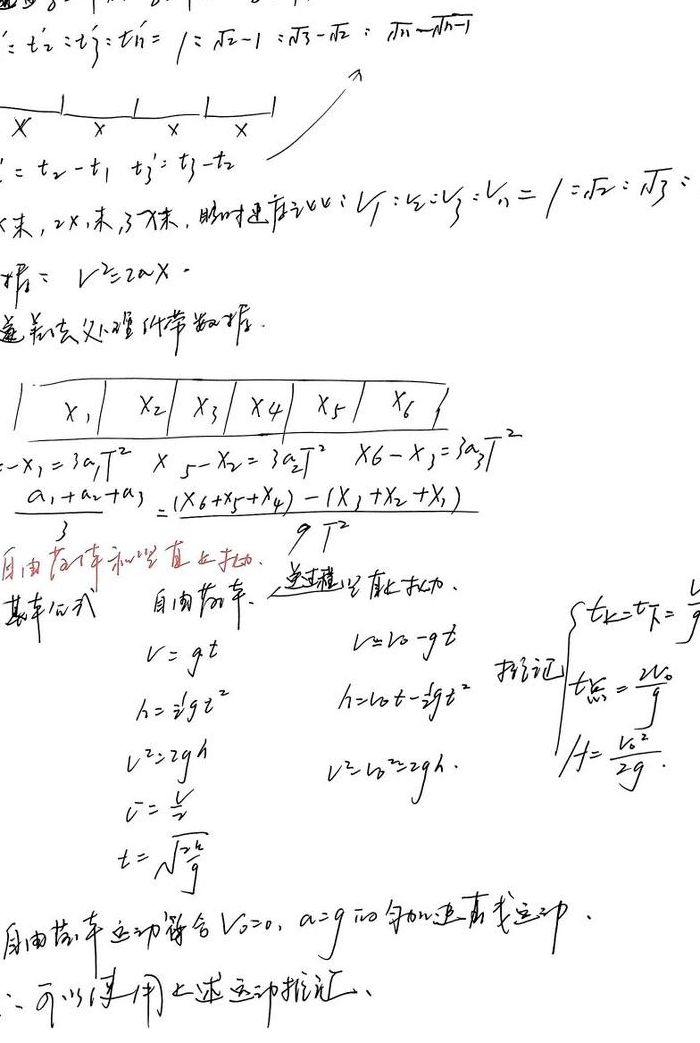 t₂' : t₃' : tₙ' = 1 : √2-1 : √3-√2 : √n-√n-1
x x x x
' = t₂-t₁ t₃' = t₃-t₂
x末, 2x末, 3x末, 瞬时速度之比: V₁:V₂:V₃:Vₙ = 1:√2:√3:
据: V²=2ax.
逐差法处理纸带数据.
x₁ x₂ x₃ x₄ x₅ x₆
-x₁=3a₁T² x₅-x₂=3a₂T² x6-x₃=3a₃T²
(a₁+a₂+a₃)/3 = ((x₆+x₅+x₄)-(x₃+x₂+x₁))/9T²
自由落体和竖直上抛.
基本公式 自由落体. 逆过程 竖直上抛.
V=gt V=V₀-gt
h=½gt² h=V₀t-½gt²
V²=2gh V²-V₀²=2gh.
v̄=V/2
t=√(2h/g)
推论 { t上=t下=V/g
t总=2V₀/g
H=V₀²/2g.
自由落体运动符合V₀=0, a=g的匀加速直线运动.
∴可以使用上述运动推论.